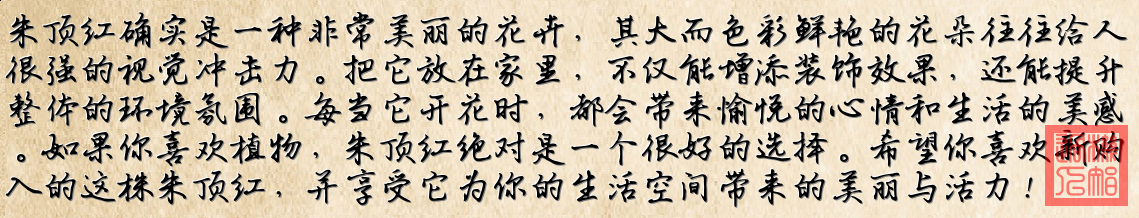 朱顶红确实是一种非常美丽的花卉，其大而色彩鲜艳的花朵往往给人
很强的视觉冲击力。把它放在家里，不仅能增添装饰效果，还能提升
整体的环境氛围。每当它开花时，都会带来愉悦的心情和生活的美感
。如果你喜欢植物，朱顶红绝对是一个很好的选择。希望你喜欢新购
入的这株朱顶红，并享受它为你的生活空间带来的美丽与活力！